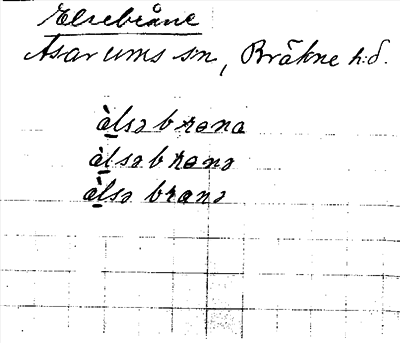 Elsebråne
Asarums sn, Bräkne h:d.
àlsə brana
àlsə branə
àlsə branə